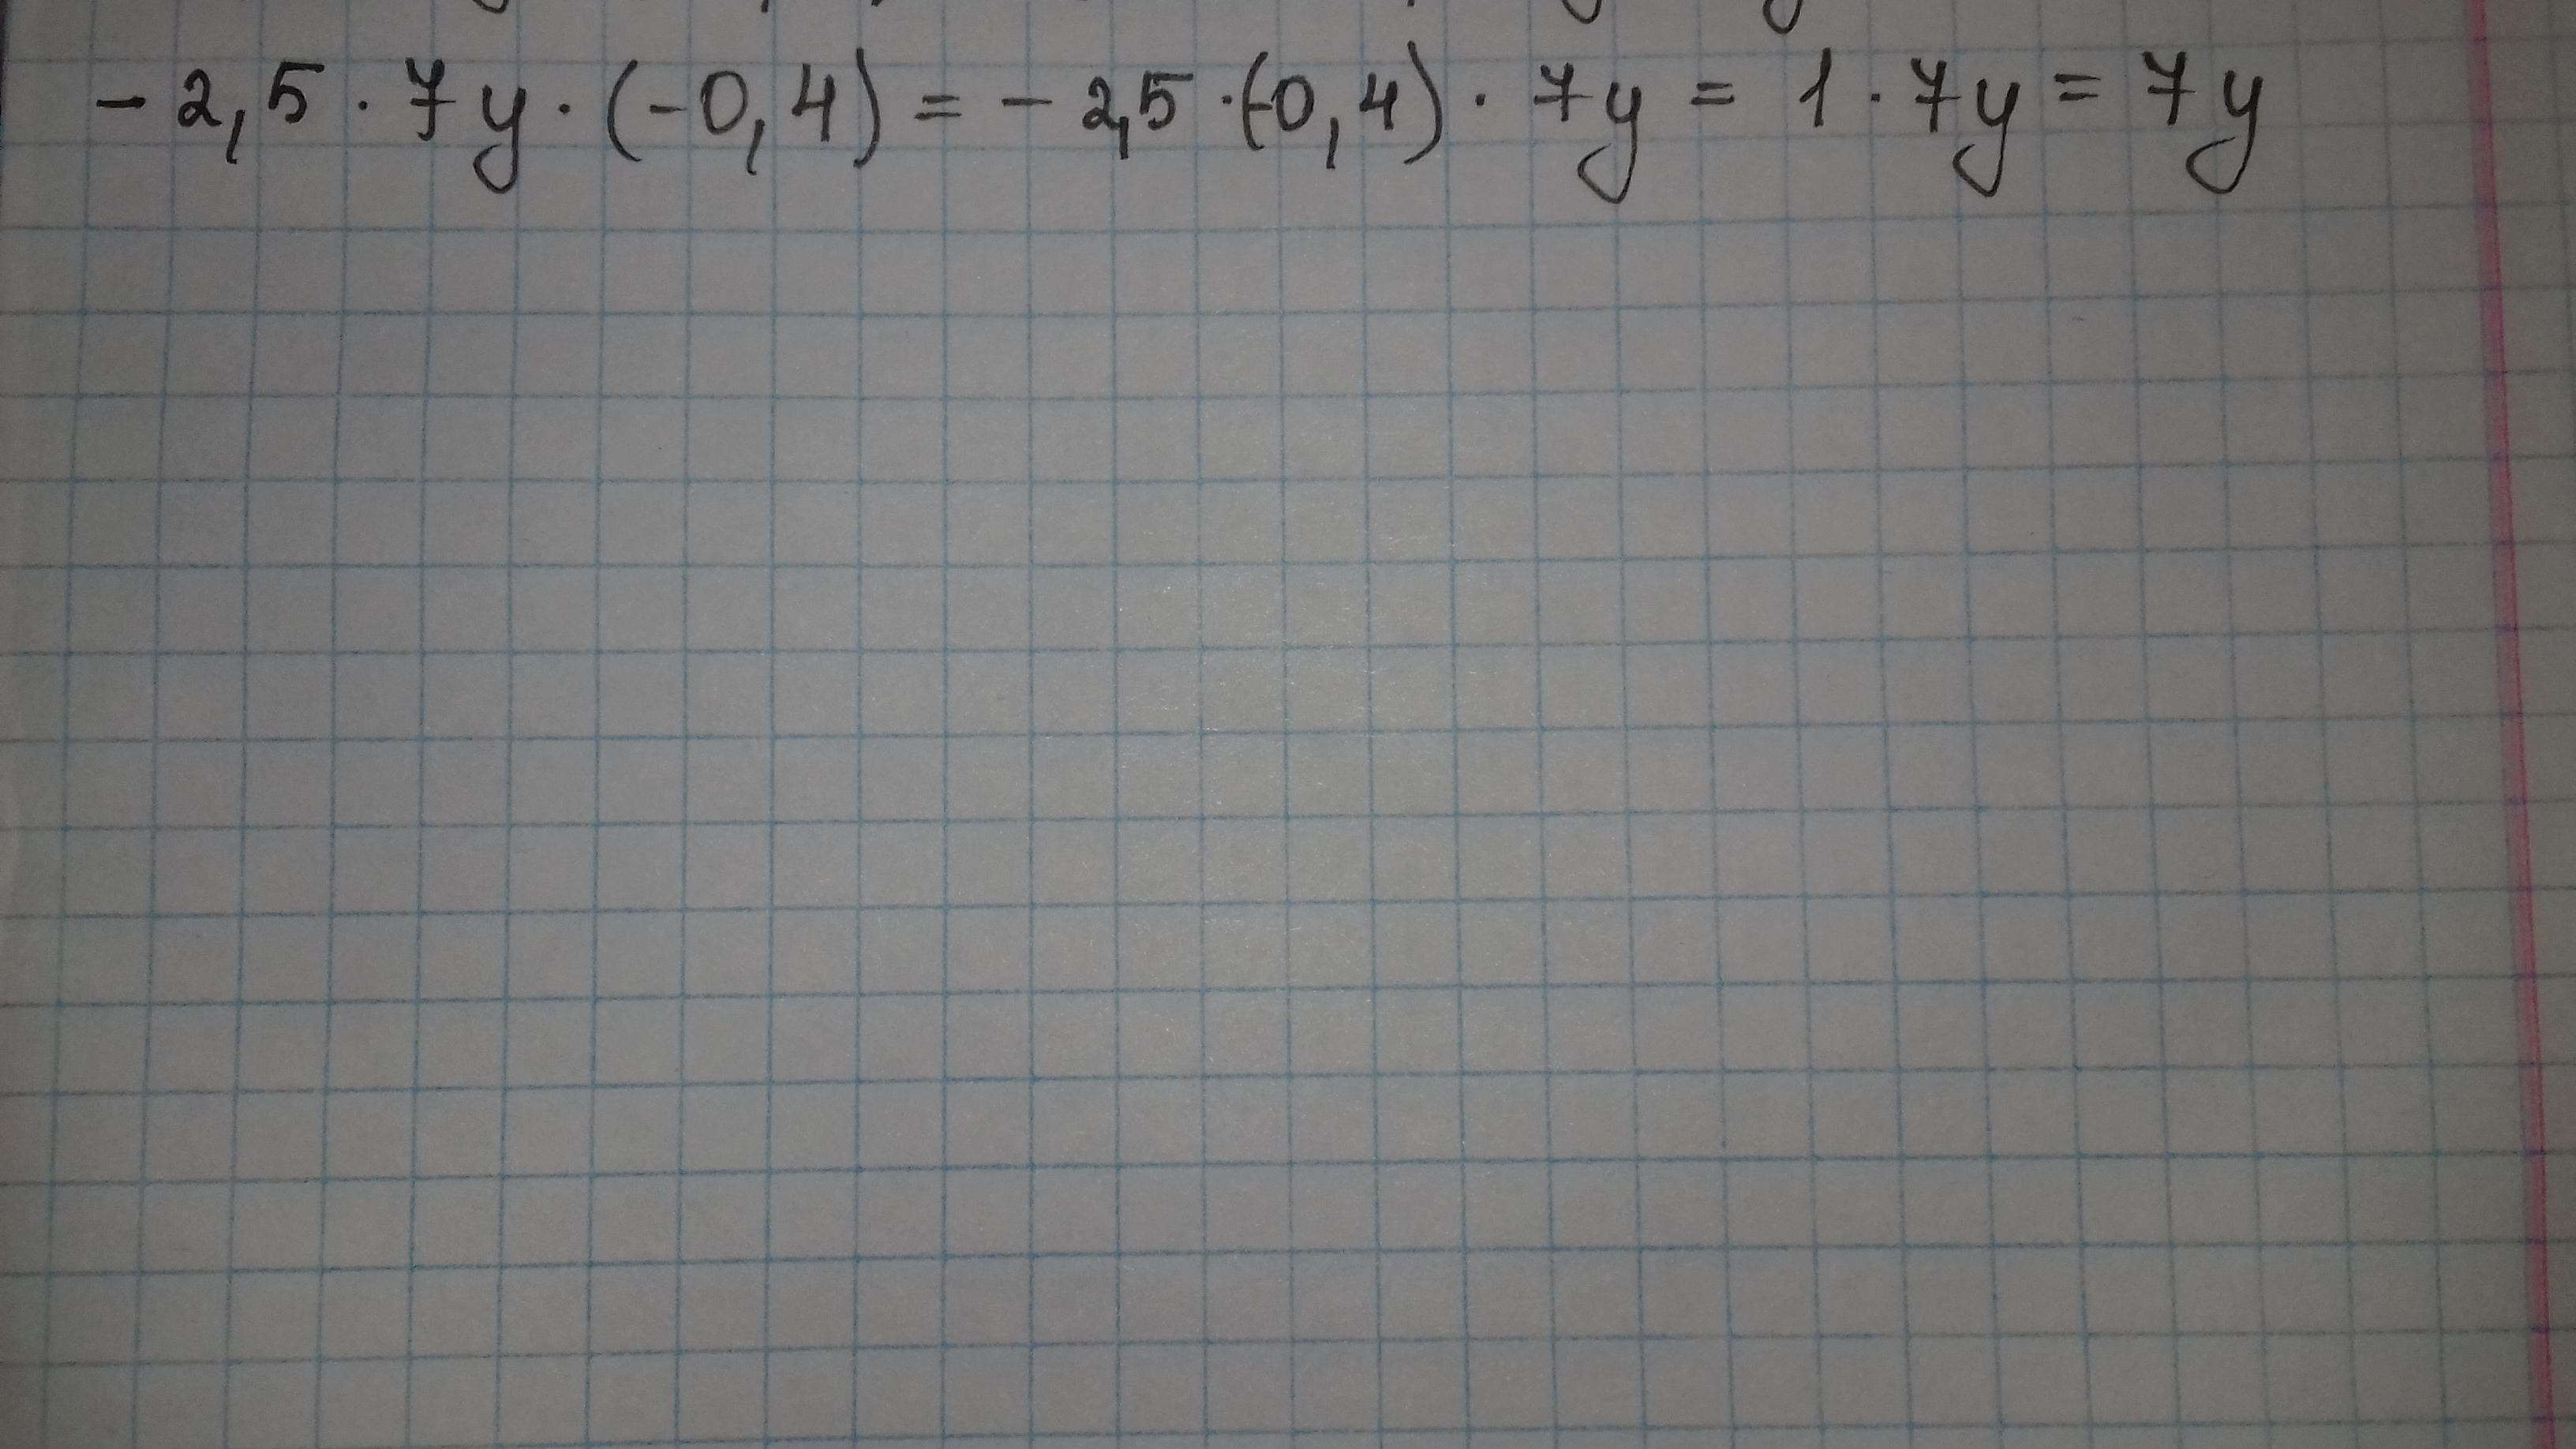 - 2,5 · 7y · (-0,4) = - 2,5 · (-0,4) · 7y = 1 · 7y = 7y